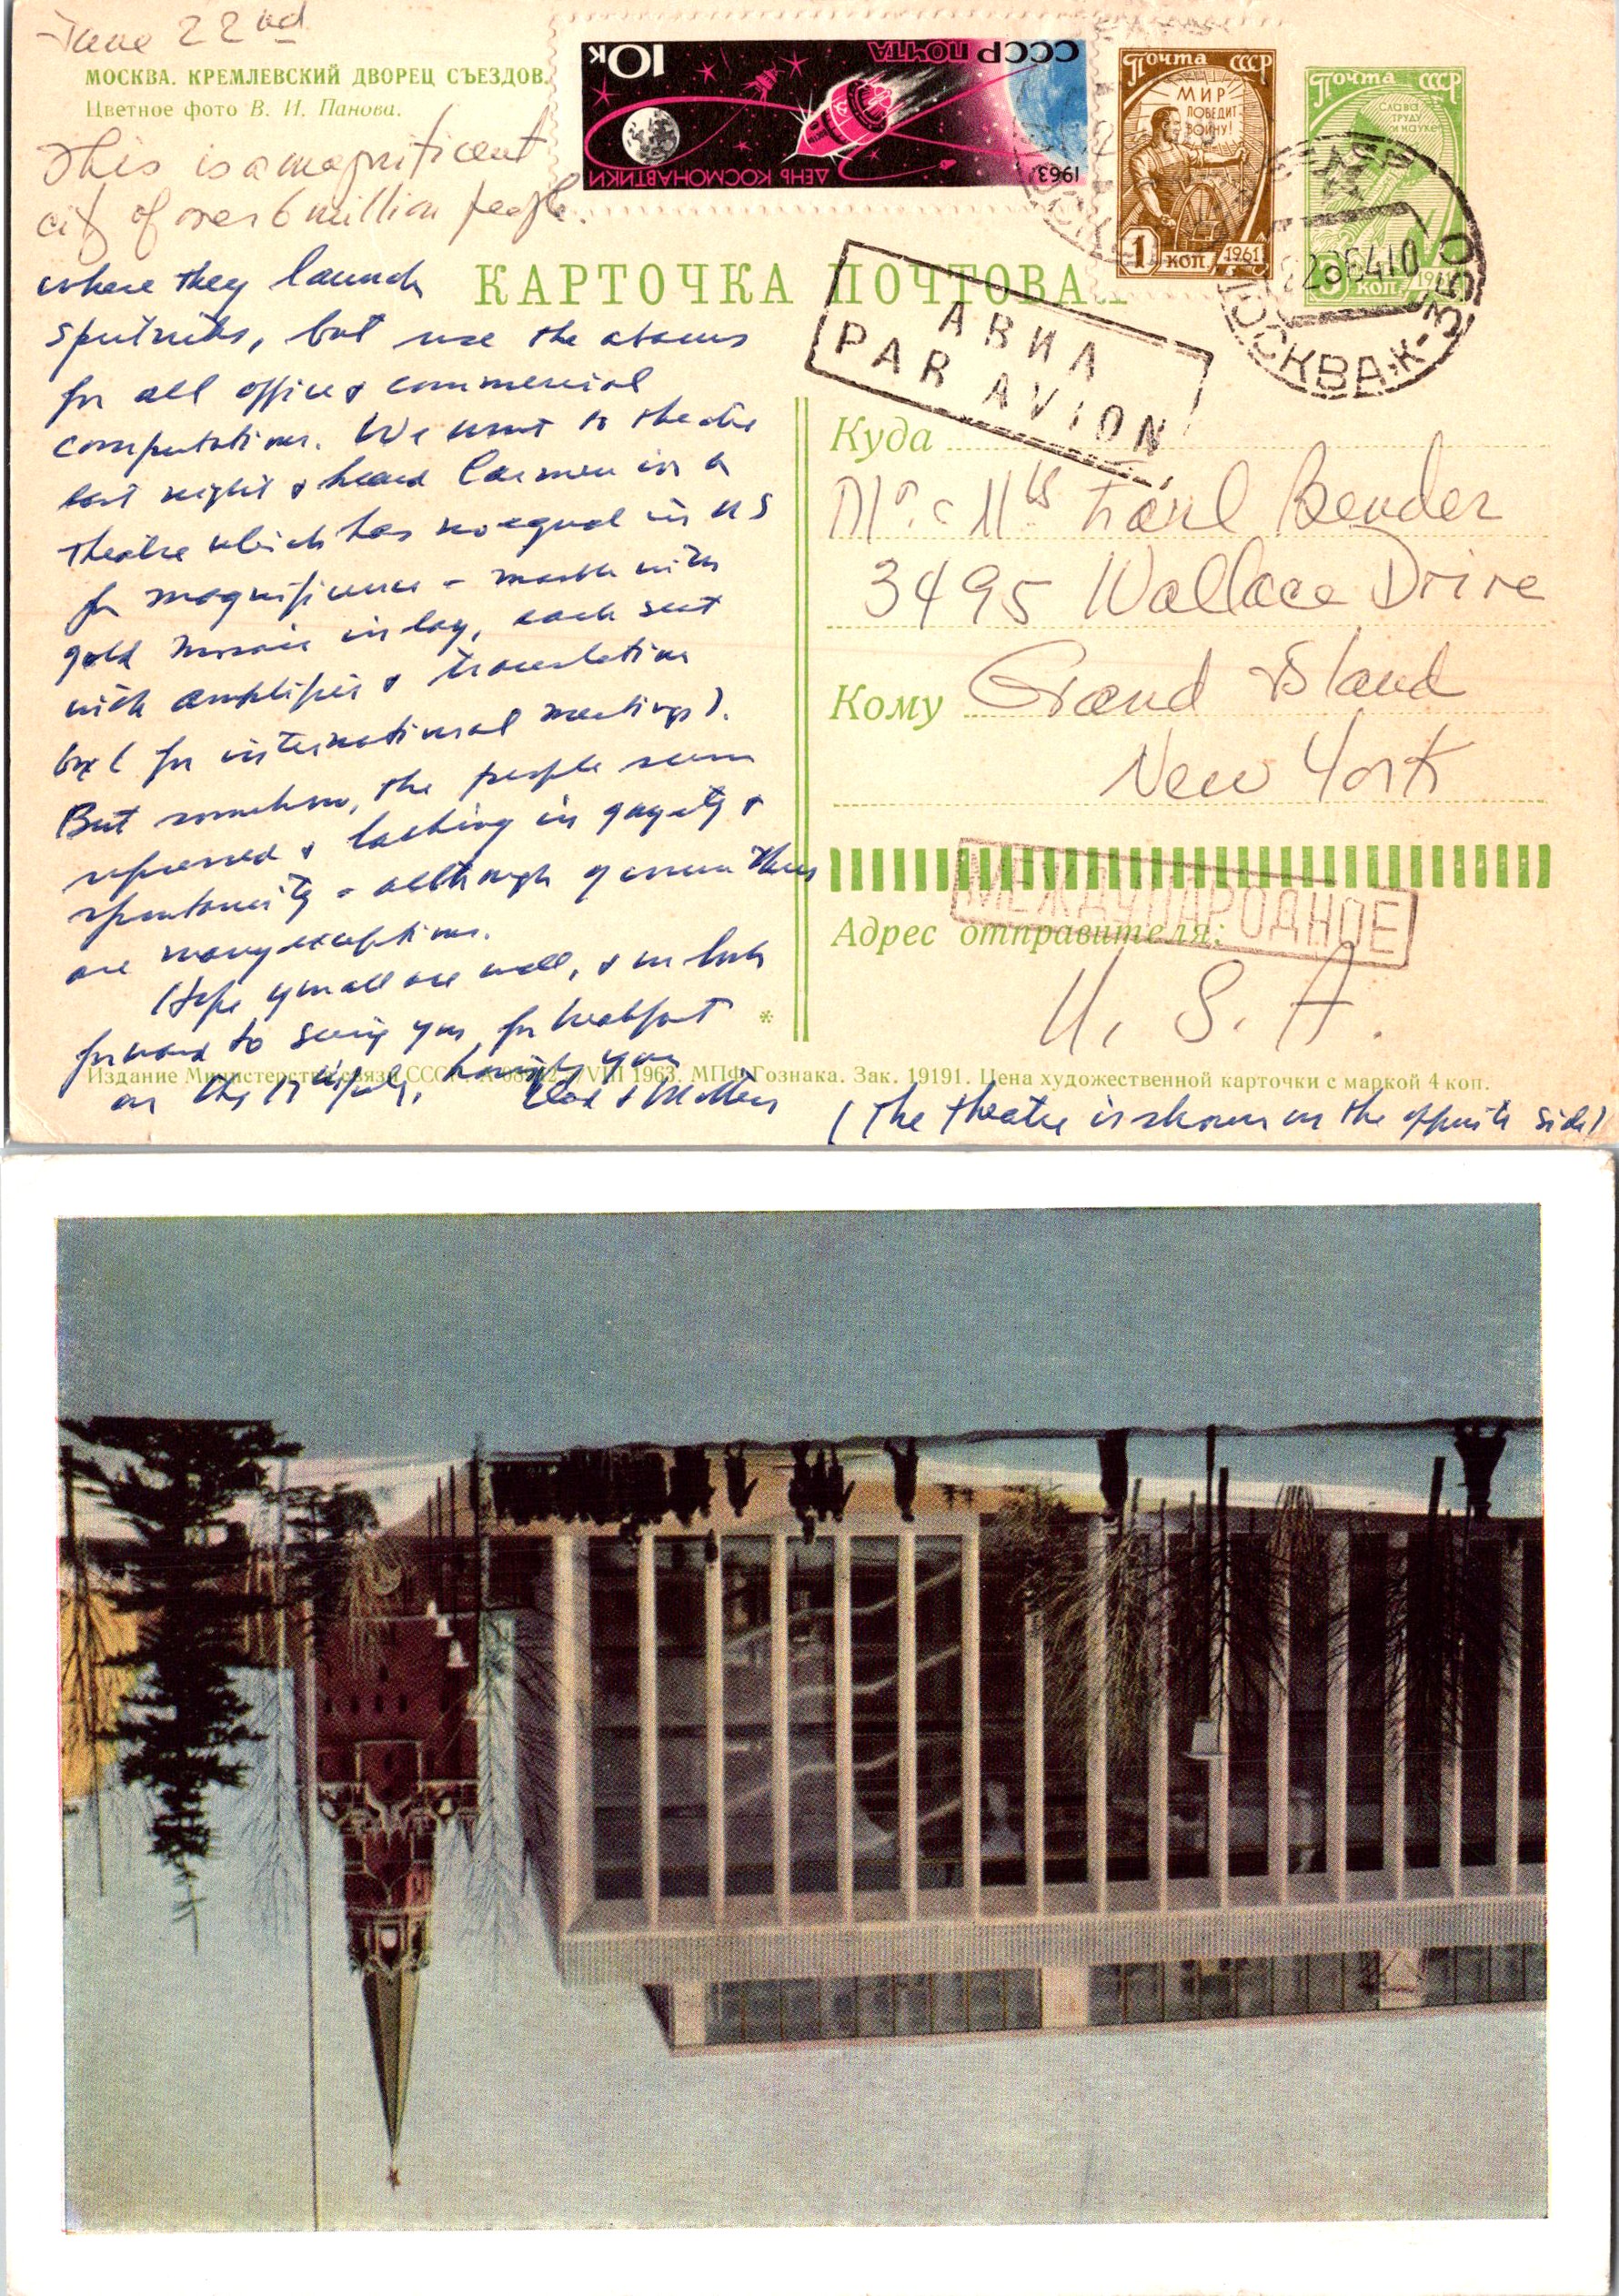 June 22nd
МОСКВА. КРЕМЛЕВСКИЙ ДВОРЕЦ СЪЕЗДОВ.
Цветное фото В. И. Панова.
This is a magnificent
city of over 6 million people.
where they launch
sputniks, but use the abacus
for all office & commercial
computations. We went to theatre
last night & heard Carmen in a
theatre which has no equal in US
for magnificence - marble with
gold mosaic inlay, each seat
with amplifier & translation
box (for international meetings).
But somehow, the people seem
repressed & lacking in gayety &
spontaneity - although I assume there
are many exceptions.
Hope you all are well, & we look
forward to seeing you for breakfast
on the
Dad & Mother
(The theatre is shown on the opposite side)
10к
СССР ПОЧТА
ДЕНЬ КОСМОНАВТИКИ
1963
Почта СССР
МИР
ПОБЕДИТ
ВОЙНУ!
1 коп
1961
Почта СССР
СЛАВА
ТРУДУ
И НАУКЕ
3 коп.
1961
МОСКВА К-350
КАРТОЧКА ПОЧТОВАЯ
АВИА
PAR AVION
Куда
Mr. & Mrs Karl Bender
3495 Wallace Drive
Кому Grand Island
New York
МЕЖДУНАРОДНОЕ
Адрес отправителя:
U. S. A.
*
Издание Министерства связи СССР. VIII 1963. МПФ Гознака. Зак. 19191. Цена художественной карточки с маркой 4 коп.